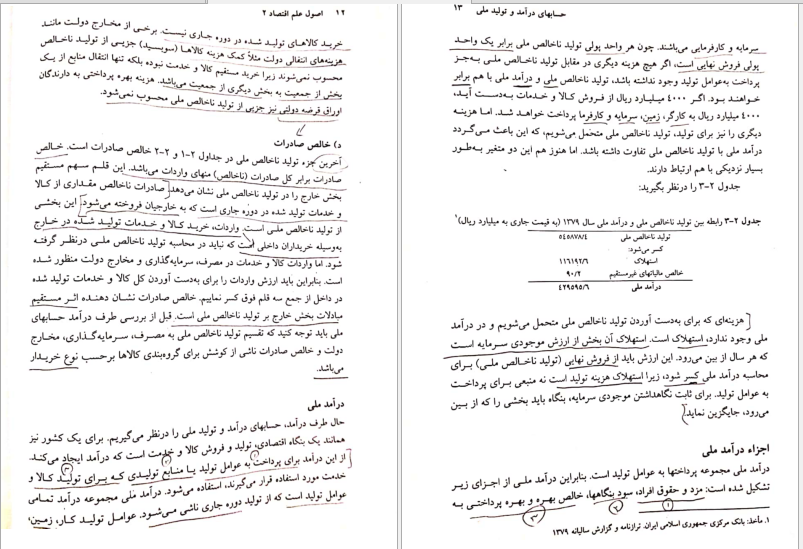 ۱۲ اصول علم اقتصاد ۲
خرید کالاهای تولید شده در دوره جاری نیست. برخی از مخارج دولت مانند
هزینه‌های انتقالی دولت مثلاً کمک هزینه کالاها (سوبسید) جزیی از تولید ناخالص
محسوب نمی‌شوند زیرا خرید مستقیم کالا و خدمت نبوده بلکه تنها انتقال منابع از یک
بخش از جمعیت به بخش دیگری از جمعیت می‌باشد. هزینه بهره پرداختی به دارندگان
اوراق قرضه دولتی نیز جزیی از تولید ناخالص ملی محسوب نمی‌شود.
د) خالص صادرات
آخرین جزء تولید ناخالص ملی در جداول ۱-۲ و ۲-۲ خالص صادرات است. خالص
صادرات برابر کل صادرات (ناخالص) منهای واردات می‌باشد. این قلم سهم مستقیم
بخش خارج را در تولید ناخالص ملی نشان می‌دهد. صادرات ناخالص مقداری از کالا
و خدمات تولید شده در دوره جاری است که به خارجیان فروخته می‌شود. این بخشی
از تولید ناخالص ملی است. واردات، خرید کالا و خدمات تولید شده در خارج
به‌وسیله خریداران داخلی است که نباید در محاسبه تولید ناخالص ملی درنظر گرفته
شود. اما واردات کالا و خدمات در مصرف، سرمایه‌گذاری و مخارج دولت منظور شده
است. بنابراین باید ارزش واردات را برای به‌دست آوردن کل کالا و خدمات تولید شده
در داخل از جمع سه قلم فوق کسر نماییم. خالص صادرات نشان دهنده اثر مستقیم
مبادلات بخش خارج بر تولید ناخالص ملی است. قبل از بررسی طرف درآمد حسابهای
ملی باید توجه کنید که تقسیم تولید ناخالص ملی به مصرف، سرمایه‌گذاری، مخارج
دولت و خالص صادرات ناشی از کوشش برای گروه‌بندی کالاها برحسب نوع خریدار
می‌باشد.
درآمد ملی
حال طرف درآمد، حسابهای درآمد و تولید ملی را درنظر می‌گیریم. برای یک کشور نیز
همانند یک بنگاه اقتصادی، تولید و فروش کالا و خدمت است که درآمد ایجاد می‌کند.
از این درآمد برای پرداخت به عوامل تولید یا منابع تولیدی که برای تولید کالا و
خدمت مورد استفاده قرار می‌گیرند، استفاده می‌شود. درآمد ملی مجموعه درآمد تمامی
عوامل تولید است که از تولید دوره جاری ناشی می‌شود. عوامل تولید کار، زمین،
حسابهای درآمد و تولید ملی ۱۳
سرمایه و کارفرمایی می‌باشند. چون هر واحد پولی تولید ناخالص ملی برابر یک واحد
پولی فروش نهایی است، اگر هیچ هزینه دیگری در مقابل تولید ناخالص ملی به‌جز
پرداخت به‌عوامل تولید وجود نداشته باشد، تولید ناخالص ملی و درآمد ملی با هم برابر
خواهند بود. اگر ۴۰۰۰ میلیارد ریال از فروش کالا و خدمات به‌دست آید،
۴۰۰۰ میلیارد ریال به کارگر، زمین، سرمایه و کارفرما پرداخت خواهد شد. اما هزینه
دیگری را نیز برای تولید، تولید ناخالص ملی متحمل می‌شویم، که این باعث می‌گردد
درآمد ملی با تولید ناخالص ملی تفاوت داشته باشد. اما هنوز هم این دو متغیر به‌طور
بسیار نزدیکی با هم ارتباط دارند.
جدول ۳-۲ را درنظر بگیرید:
جدول ۳-۲ رابطه بین تولید ناخالص ملی و درآمد ملی سال ۱۳۷۹ (به قیمت جاری به میلیارد ریال)۱
تولید ناخالص ملی ۵۴۵۸۷۸/۴
کسر می‌شود:
استهلاک ۱۱۶۱۹۲/۶
خالص مالیاتهای غیرمستقیم ۹۰/۲
درآمد ملی ۴۲۹۵۹۵/۶
هزینه‌ای که برای به‌دست آوردن تولید ناخالص ملی متحمل می‌شویم و در درآمد
ملی وجود ندارد، استهلاک است. استهلاک آن بخش از ارزش موجودی سرمایه است
که هر سال از بین می‌رود. این ارزش باید از فروش نهایی (تولید ناخالص ملی) برای
محاسبه درآمد ملی کسر شود، زیرا استهلاک هزینه تولید است نه منبعی برای پرداخت
به عوامل تولید. برای ثابت نگاهداشتن موجودی سرمایه، بنگاه باید بخشی را که از بین
می‌رود، جایگزین نماید.
اجزاء درآمد ملی
درآمد ملی مجموعه پرداختها به عوامل تولید است. بنابراین درآمد ملی از اجزای زیر
تشکیل شده است: مزد و حقوق افراد، سود بنگاهها، خالص بهره و بهره پرداختی به
۱. مأخذ: بانک مرکزی جمهوری اسلامی ایران. ترازنامه و گزارش سالیانه ۱۳۷۹